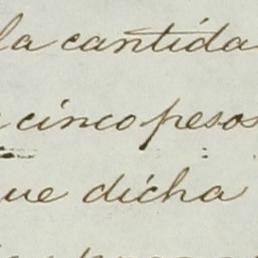 la cantida
cinco pesos
ue dicha